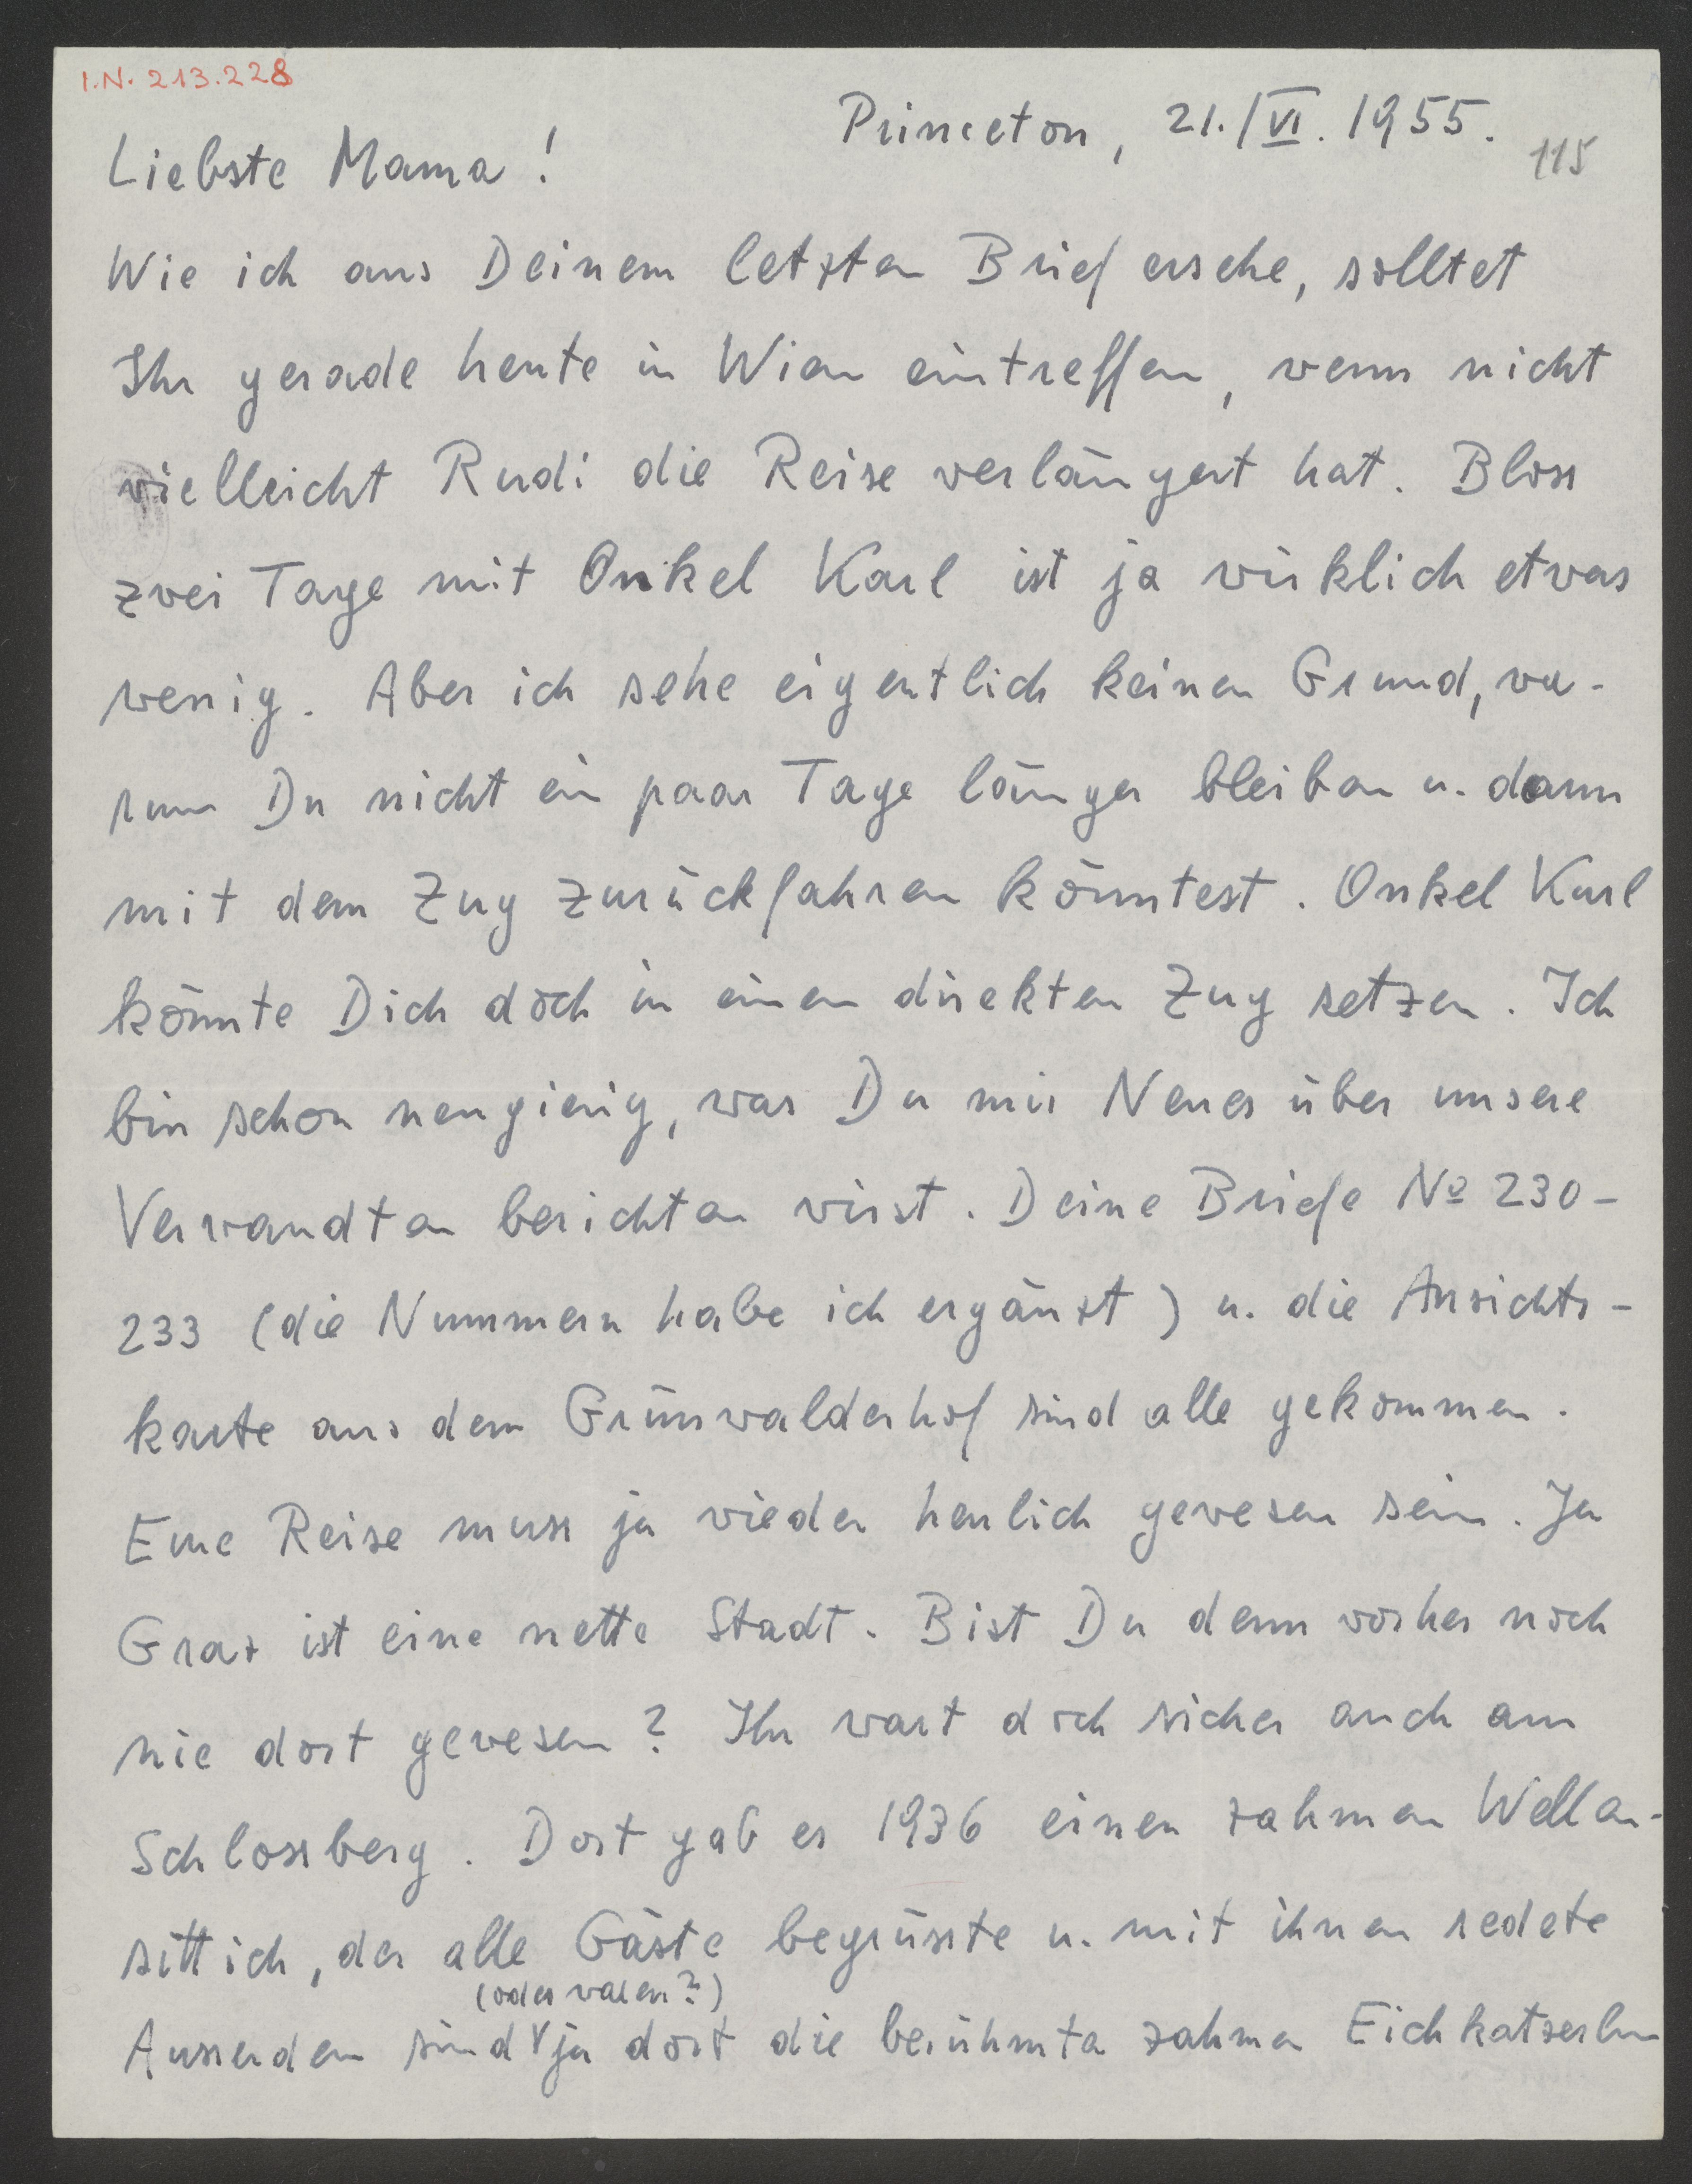 I.N. 213.228
Princeton, 21./VI. 1955.
115
Liebste Mama!
Wie ich aus Deinem letzten Brief ersehe, solltet
Ihr gerade heute in Wien eintreffen, wenn nicht
vielleicht Rudi die Reise verlängert hat. Bloss
zwei Tage mit Onkel Karl ist ja wirklich etwas
wenig. Aber ich sehe eigentlich keinen Grund, wa-
rum Du nicht ein paar Tage länger bleiben u. dann
mit dem Zug zurückfahren könntest. Onkel Karl
könnte Dich doch in einen direkten Zug setzen. Ich
bin schon neugierig, was Du mir Neues über unsere
Verwandten berichten wirst. Deine Briefe Nº 230-
233 (die Nummern habe ich ergänzt) u. die Ansichts-
karte aus dem Grünwalderhof sind alle gekommen.
Eure Reise muss ja wieder herrlich gewesen sein. Ja
Graz ist eine nette Stadt. Bist Du denn vorher noch
nie dort gewesen? Ihr wart doch sicher auch am
Schlossberg. Dort gab es 1936 einen zahmen Wellen-
sittich, der alle Gäste begrüsste u. mit ihnen redete
(oder waren?)
Ausserdem sind ja dort die berühmten zahmen Eichkatzerln